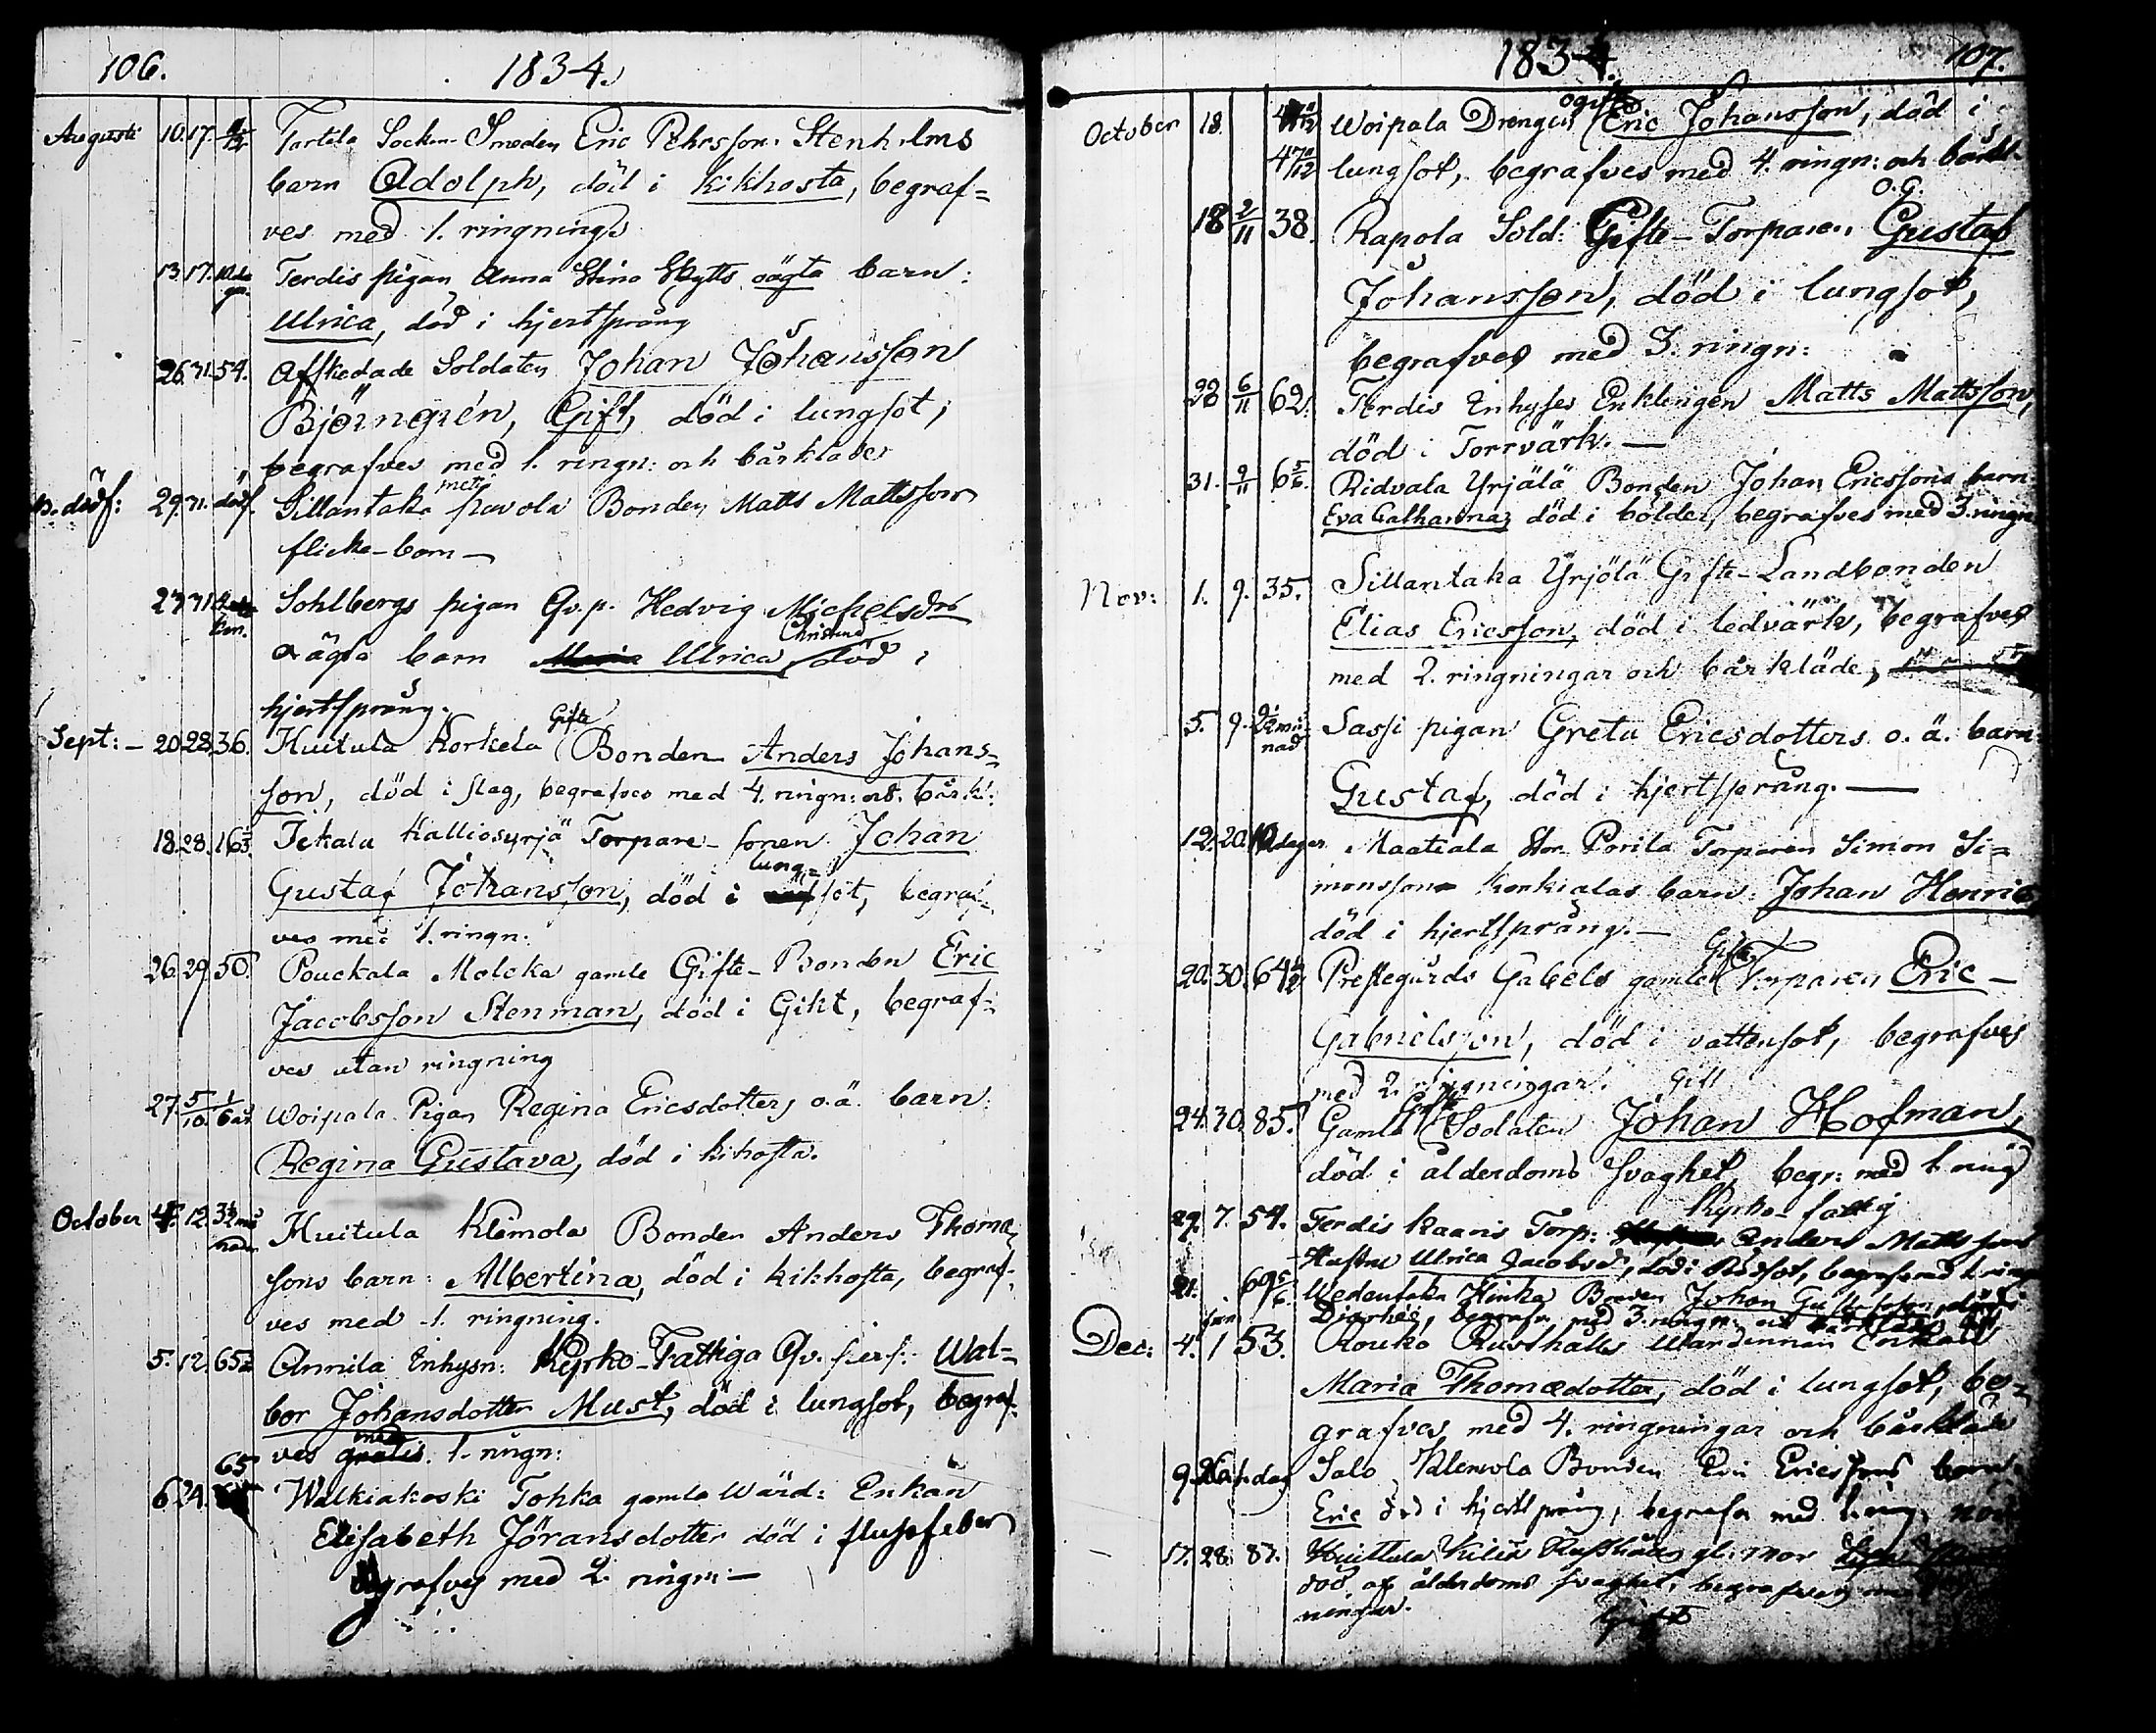 106.
1834.
Augusti 10. 17. Tartila Socken Smeden Eric Pehrsson Stenholms
barn Adolph, död i kikhosta, begraf=
ves med 1. ringning.
13. 17. Terdis pigan Anna Stina Skytts oägta barn:
Ulrica, död i hjertsprång
26. 31. 54. Afskedade Soldaten Johan Johansson
Björngrén, Gift, död i lungsot,
begrafves med 1. ringn: och bårkläde
dödf: 29. 31. dödf. Sillantaka Bonden Matts Mattsson
flicke-barn –
27. 31. Sohlbergs pigan Qv.p. Hedvig Michelsdr
oägta barn Maria Ulrica Christina, död i
hjertsprång.
Sept: – 20. 28. 36. Huitula Korkela Gifte Bonden Anders Johans=
son, död i slag, begrafves med 4. ringn: och bårkl:
18. 28. Tekala Kalliosyrjä Torpare-sonen Johan
Gustaf Johansson, död i lung=sot, begraf=
ves med 1. ringn:
26. 29. 50. Pouckala Molcka gamle Gifte-Bonden Eric
Jacobsson Stenman, död i Gikt, begraf=
ves utan ringning
27. 5/10. 1/6 år Woipala Pigan Regina Ericsdotters o.ä. barn:
Regina Gustava, död i kikhosta.
October 4. 12. Huitula Klemola Bonden Anders Thomæ
sons barn: Albertina, död i kikhosta, begraf=
ves med 1. ringning.
5. 12. Annila Inhysn: Kyrko-Fattiga Qv. pers: Wal=
bor Johansdotter Must, död i lungsot, begraf=
ves gratis med 1. ringn:
6. 24. 65 Walkiakoski Tohka gamla Wärd: Enkan
Elisabeth Jöransdotter död i flussfeber
begrafves med 2. ringn: –
1834.
107.
October 18. 47 8/12 Woipala Drengen ogifte Eric Johansson, död i
lungsot, begrafves med 4. ringn: och bårkl.
18 2/11 38. Rapola Sold: Gifte-Torparen O.G. Gustaf
Johansson, död i lungsot,
begrafves med 3. ringn:
28 6/11 62. Terdis Inhyses Enklingen Matts Mattsson,
död i Torrvärk. –
31. 9/11 6 5/6. Ridvala Yrjälä Bonden Johan Ericssons barn
Eva Catharina, död i bölder, begrafves med 3. ringn
Nov: 1. 9. 35. Sillantaka Yrjölä Gifte-Landbonden
Elias Ericsson, död i ledvärk, begrafves
med 2. ringningar och bårkläde,
5. 9. månad Sassi pigan Greta Ericsdotters o.ä. barn
Gustaf, död i hjertsprång. –
12. 20. 10 dagar Maatiala Stor Porila Torparen Simon Si=
monsson Konkialas barn: Johan Henric,
död i hjertsprång. –
20. 30. 64 1/2 Prestegårds Gabels gamle Gifte Torparen Eric –
Gabrielsson, död i vattensot, begrafves
med 2. ringningar.
24. 30. 85. Gamle Gifte Soldaten Johan Hofman,
död i ålderdoms svaghet, begr: med 1. ring
29. 7. 54. Terdis Kaaris Torp: Kyrko-fattig Anders Mattssons
Hustru Ulrica Jacobsd, död i Rödsot, begrafs med 1. ringn
21. 69 5/6. Wedentaka Hinka Bonden Johan Gustafsson, död i
Diarhée, begrafv. med 3. ringn: och bårkläde
Dec: 4. 1 53. Rouko Rusthålls Wärdinnan Enkan
Maria Thomædotter, död i lungsot, be=
grafves med 4. ringningar och bårkläde
9. dag Salo Klemola Bonden Eric Ericssons barn
Eric död i hjertsprång, begrafv med 1. ring,
17. 28. 87. Huittula Kilia Rusthålls gl: mor
död af ålderdoms svaghet, begrafves med
ningar.
Gift